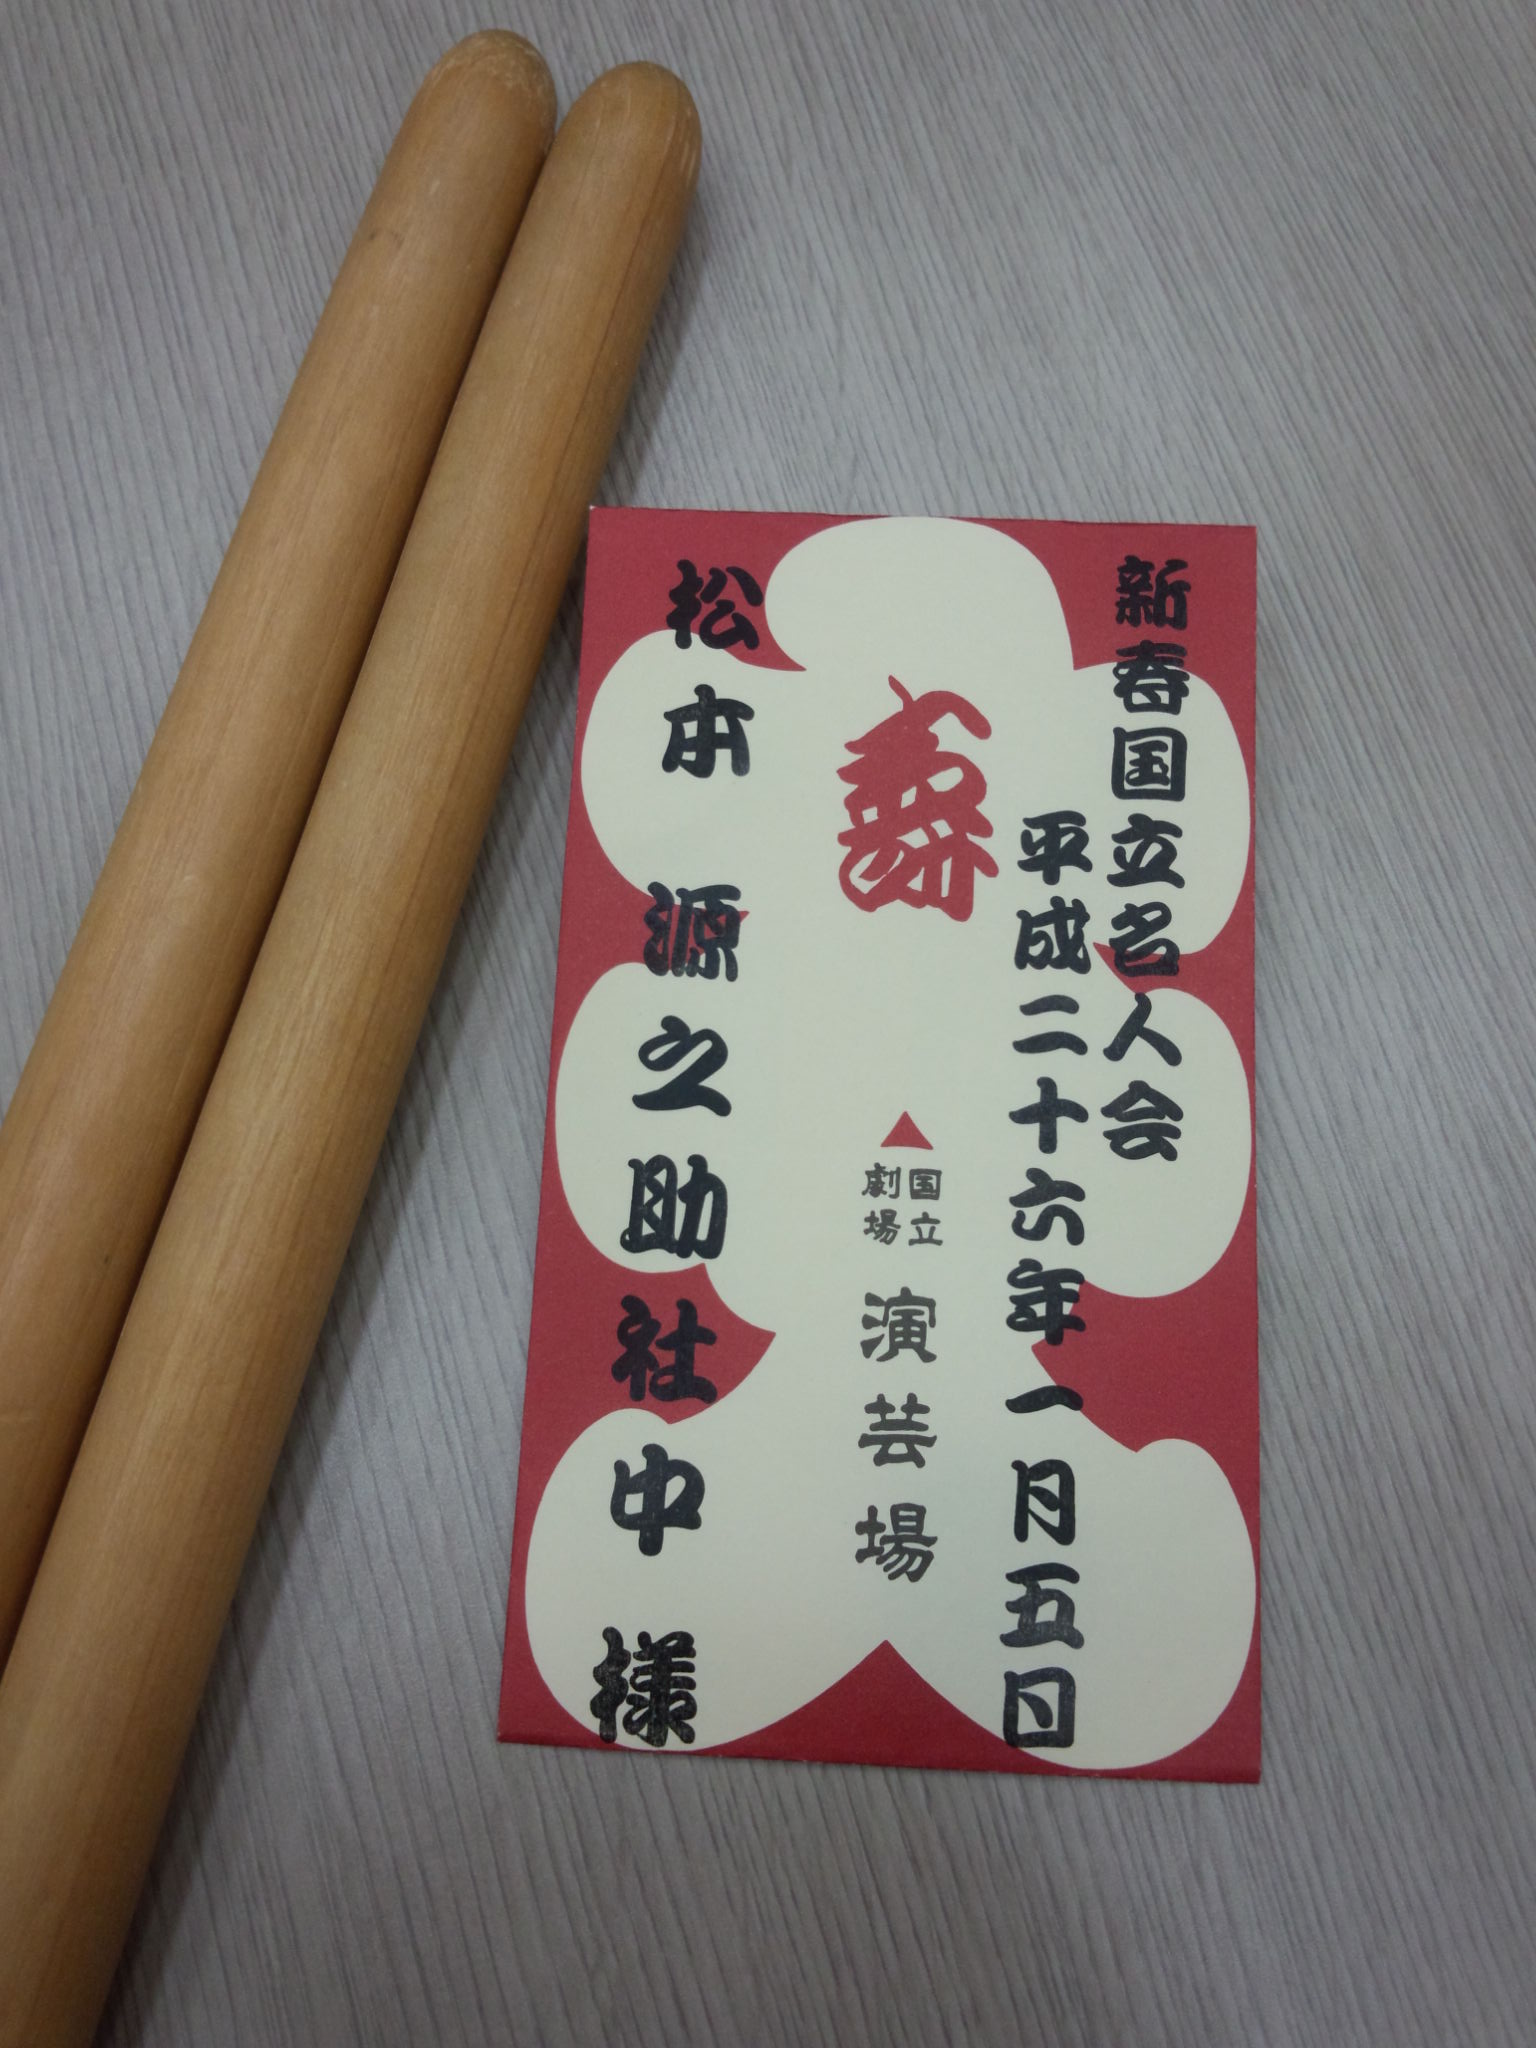 新春国立名人会
平成二十六年一月五日
国立
劇場
演芸場
松本源之助社中様